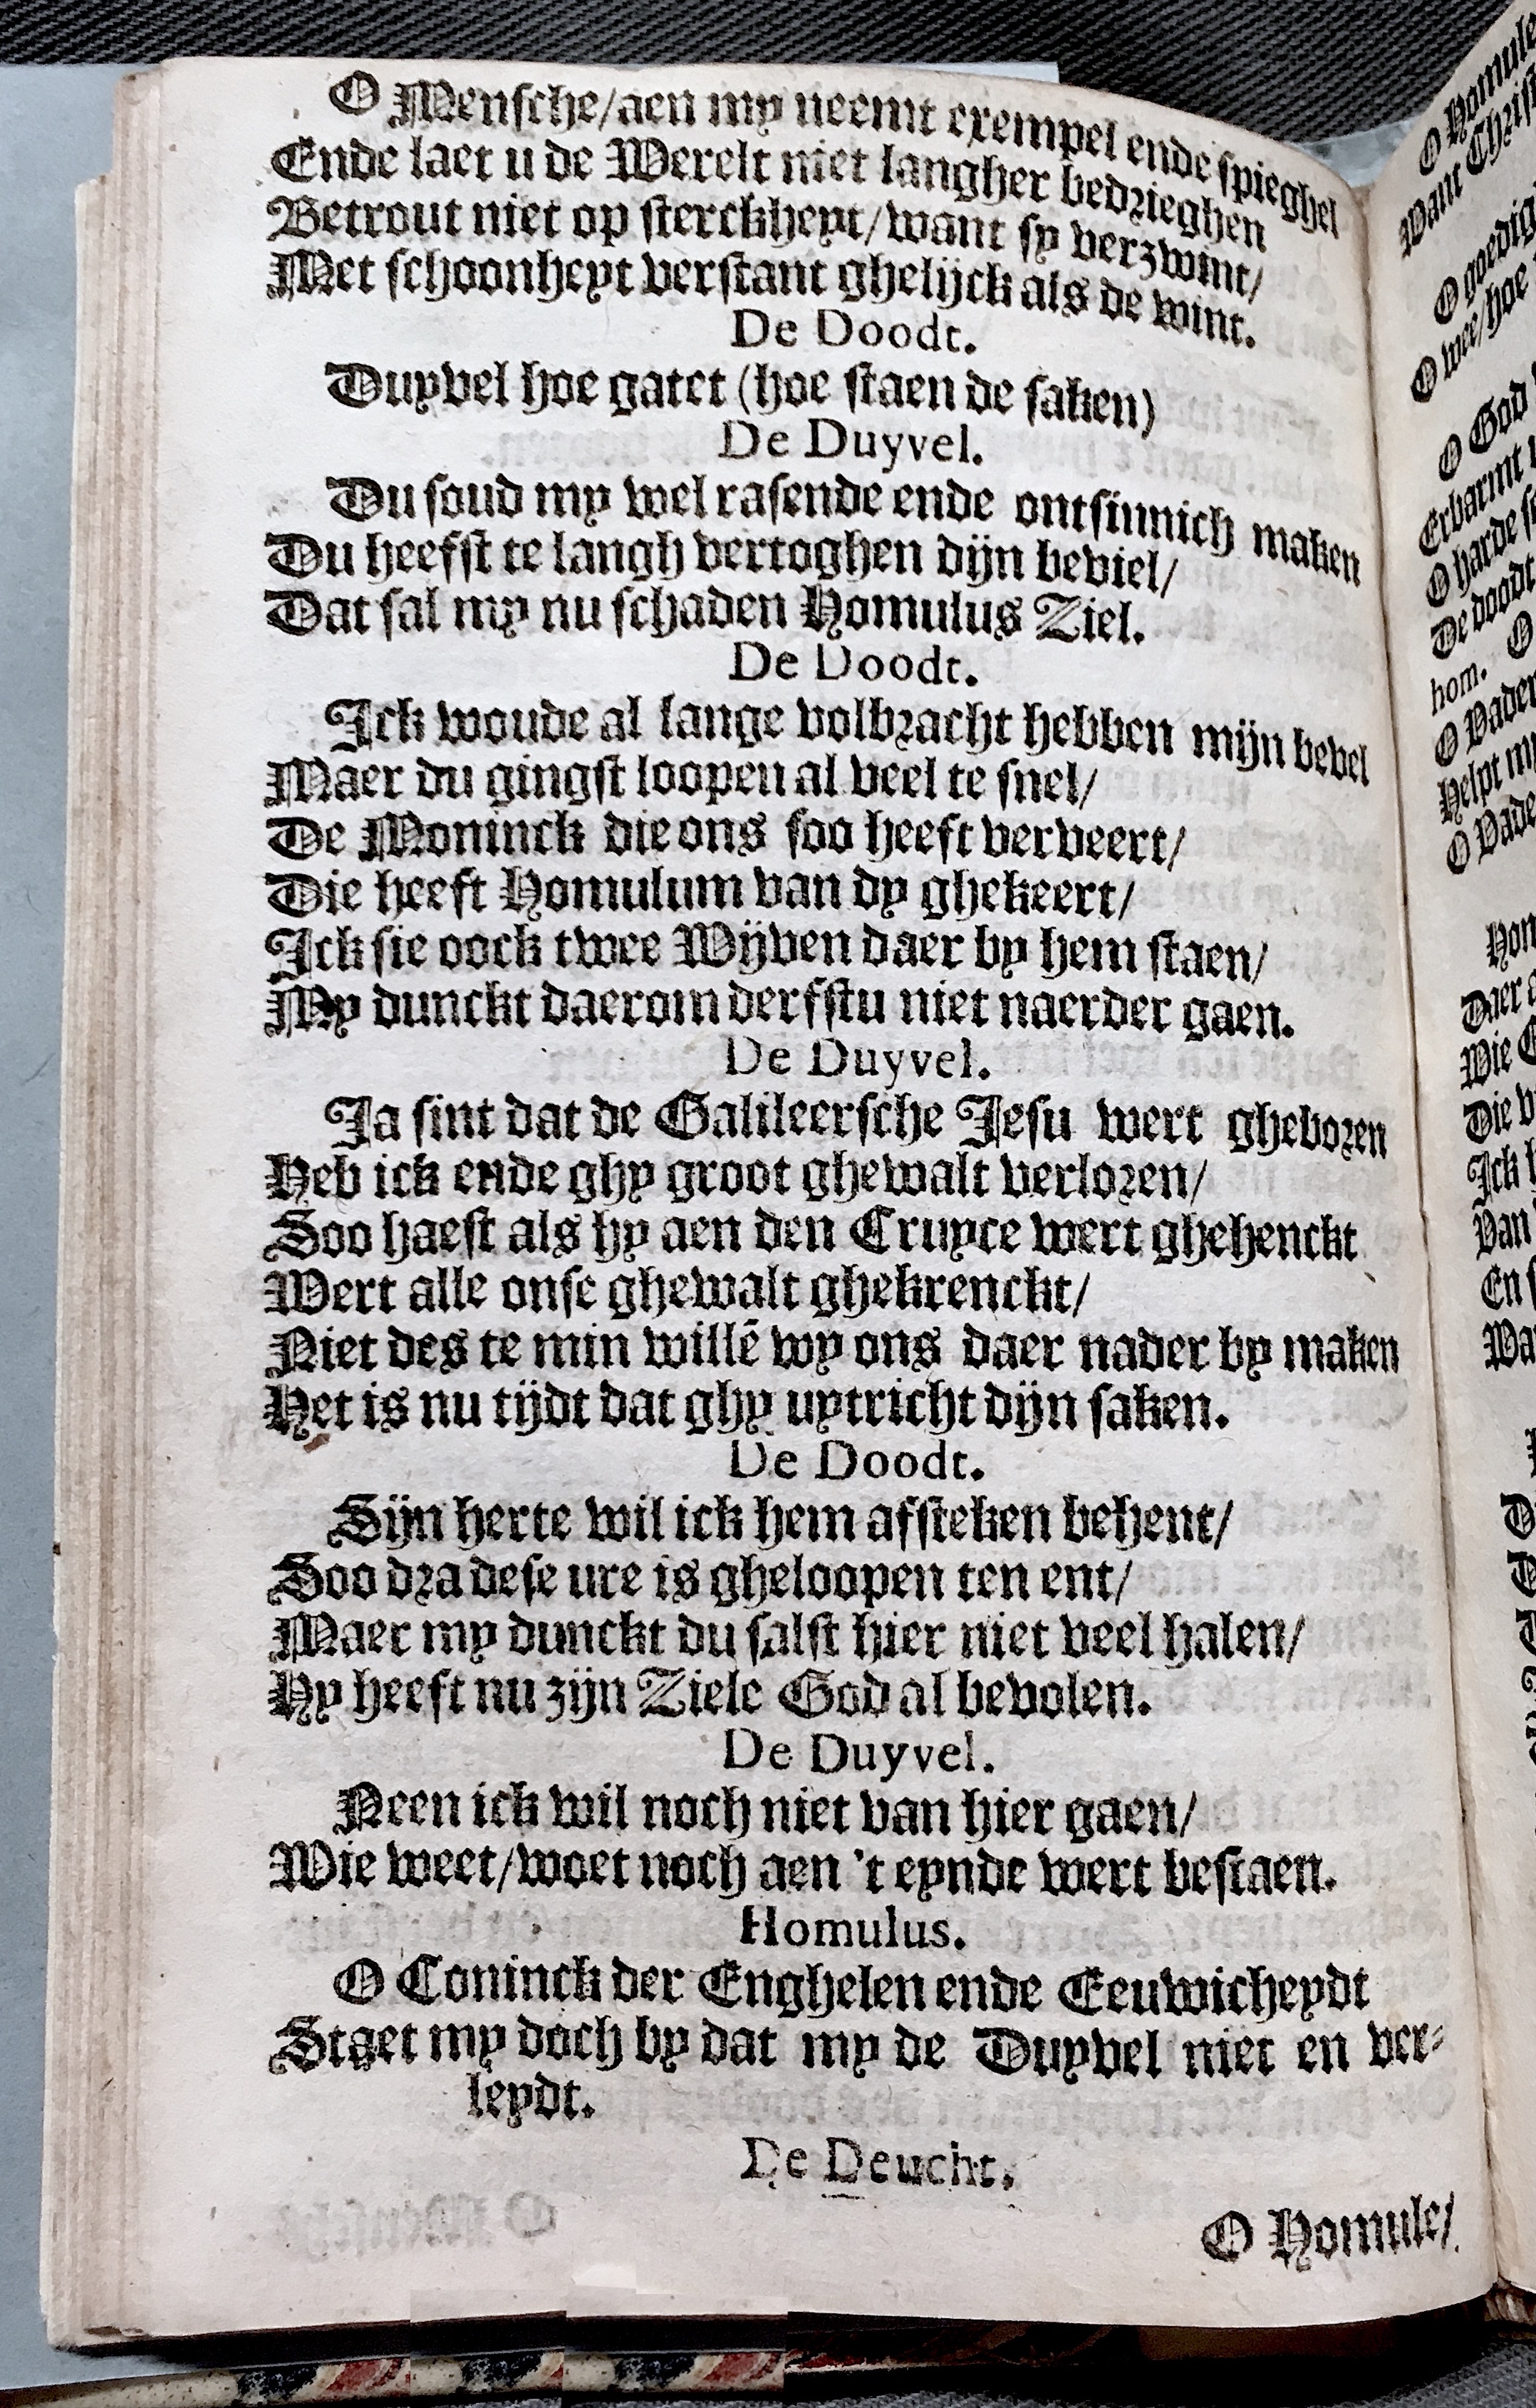 O Mensche/aen my neemt exempel ende spieghel
Ende laet u de Werelt niet langher bedrieghen
Betrout niet op sterckheyt/want sy verzwint/
Met schoonheyt verstant ghelijck als de wint.
De Doodt.
Duyvel hoe gatet (hoe staen de saken)
De Duyvel.
Du soud my wel rasende ende ontsinnich maken
Du heefst te langh vertoghen dijn beviel/
Dat sal my nu schaden Homulus Ziel.
De Doodt.
Ick woude al lange volbracht hebben mijn bevel
Maer du gingst loopen al veel te snel/
De Moninck die ons soo heeft verveert/
Die heeft Homulum van dy ghekeert/
Ick sie oock twee Wijven daer by hem staen/
My dunckt daerom derfstu niet naerder gaen.
De Duyvel.
Ja sint dat de Galileersche Jesu wert gheboren
Heb ick ende ghy groot ghewalt verloren/
Soo haest als hy aen den Cruyce wert ghehenckt
Wert alle onse ghewalt ghekrenckt/
Niet des te min willē wy ons daer nader by maken
Het is nu tijdt dat ghy uytricht dijn saken.
De Doodt.
Sijn herte wil ick hem afsteken behent/
Soo dra dese ure is gheloopen ten ent/
Maer my dunckt du salst hier niet veel halen/
Hy heeft nu zijn Ziele God al bevolen.
De Duyvel.
Neen ick wil noch niet van hier gaen/
Wie weet/woet noch aen 't eynde wert bestaen.
Homulus.
O Coninck der Enghelen ende Eeuwicheydt
Staet my doch by dat my de Duyvel niet en ver-
leydt.
De Deucht.
O Homule/
O Homule
Want Chris
O goedig
O wee/hoe
O God
Erbarmt
O harde
De doodt
hom. O
O Vader
Helpt my
O Vade
Hom
Daer
Wie
Die
Ick
Van
En